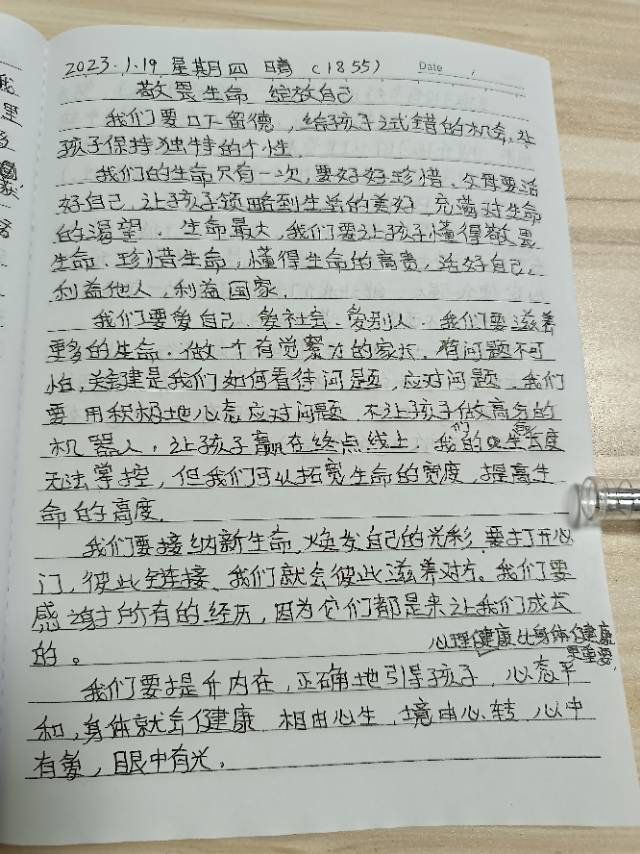 2023.1.19 星期四 晴 (1855)
Date
敬畏生命 绽放自己
我们要口下留德，给孩子试错的机会，让
孩子保持独特的个性。
我们的生命只有一次，要好好珍惜。父母要活
好自己，让孩子领略到生活的美好，充满对生命
的渴望。生命最大，我们要让孩子懂得敬畏
生命、珍惜生命，懂得生命的高贵，活好自己，
利益他人，利益国家。
我们要爱自己、爱社会、爱别人。我们要滋养
更多的生命。做一个有觉察力的家长。有问题不可
怕，关键是我们如何看待问题，应对问题。我们
要用积极地心态应对问题。不让孩子做高分的
机器人，让孩子赢在终点线上。我们的生命长度
无法掌控，但我们可以拓宽生命的宽度，提高生
命的高度。
我们要接纳新生命，焕发自己的光彩，要打开心
门，彼此链接，我们就会彼此滋养对方。我们要
感谢所有的经历，因为它们都是来让我们成长
的。
心理健康比身体健康
更重要。
我们要提升内在，正确地引导孩子，心态平
和，身体就会健康，相由心生，境由心转，心中
有爱，眼中有光。